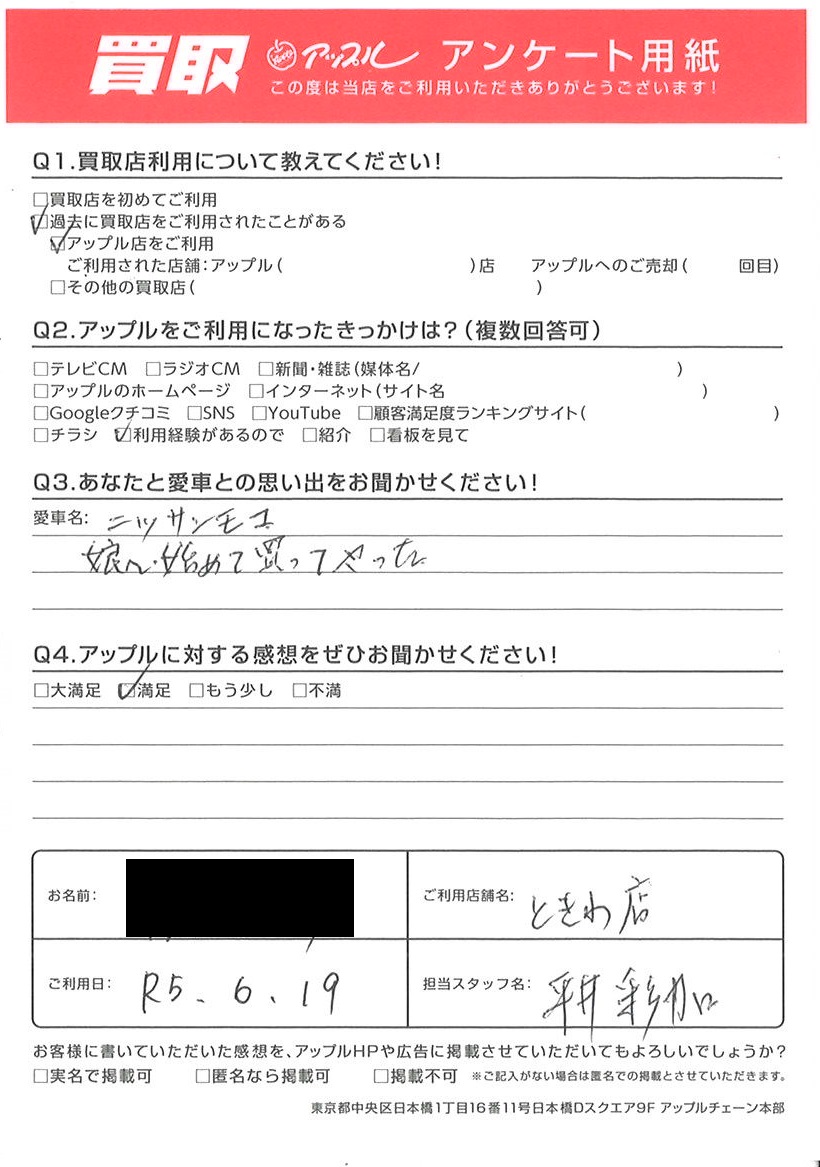 買取 アップル アンケート用紙
この度は当店をご利用いただきありがとうございます!
Q1.買取店利用について教えてください!
□買取店を初めてご利用
☑過去に買取店をご利用されたことがある
☑アップル店をご利用
ご利用された店舗:アップル( )店 アップルへのご売却( 回目)
□その他の買取店( )
Q2.アップルをご利用になったきっかけは?(複数回答可)
□テレビCM □ラジオCM □新聞・雑誌(媒体名/ )
□アップルのホームページ □インターネット(サイト名 )
□Googleクチコミ □SNS □YouTube □顧客満足度ランキングサイト( )
□チラシ ☑利用経験があるので □紹介 □看板を見て
Q3.あなたと愛車との思い出をお聞かせください!
愛車名: ニッサンモコ
娘へ始めて買ってやった
Q4.アップルに対する感想をぜひお聞かせください!
□大満足 ☑満足 □もう少し □不満
お名前: ご利用店舗名: ときわ店
ご利用日: R5.6.19 担当スタッフ名: 平井
お客様に書いていただいた感想を、アップルHPや広告に掲載させていただいてもよろしいでしょうか?
□実名で掲載可 □匿名なら掲載可 □掲載不可 ※ご記入がない場合は匿名での掲載とさせていただきます。
東京都中央区日本橋1丁目16番11号日本橋Dスクエア9F アップルチェーン本部